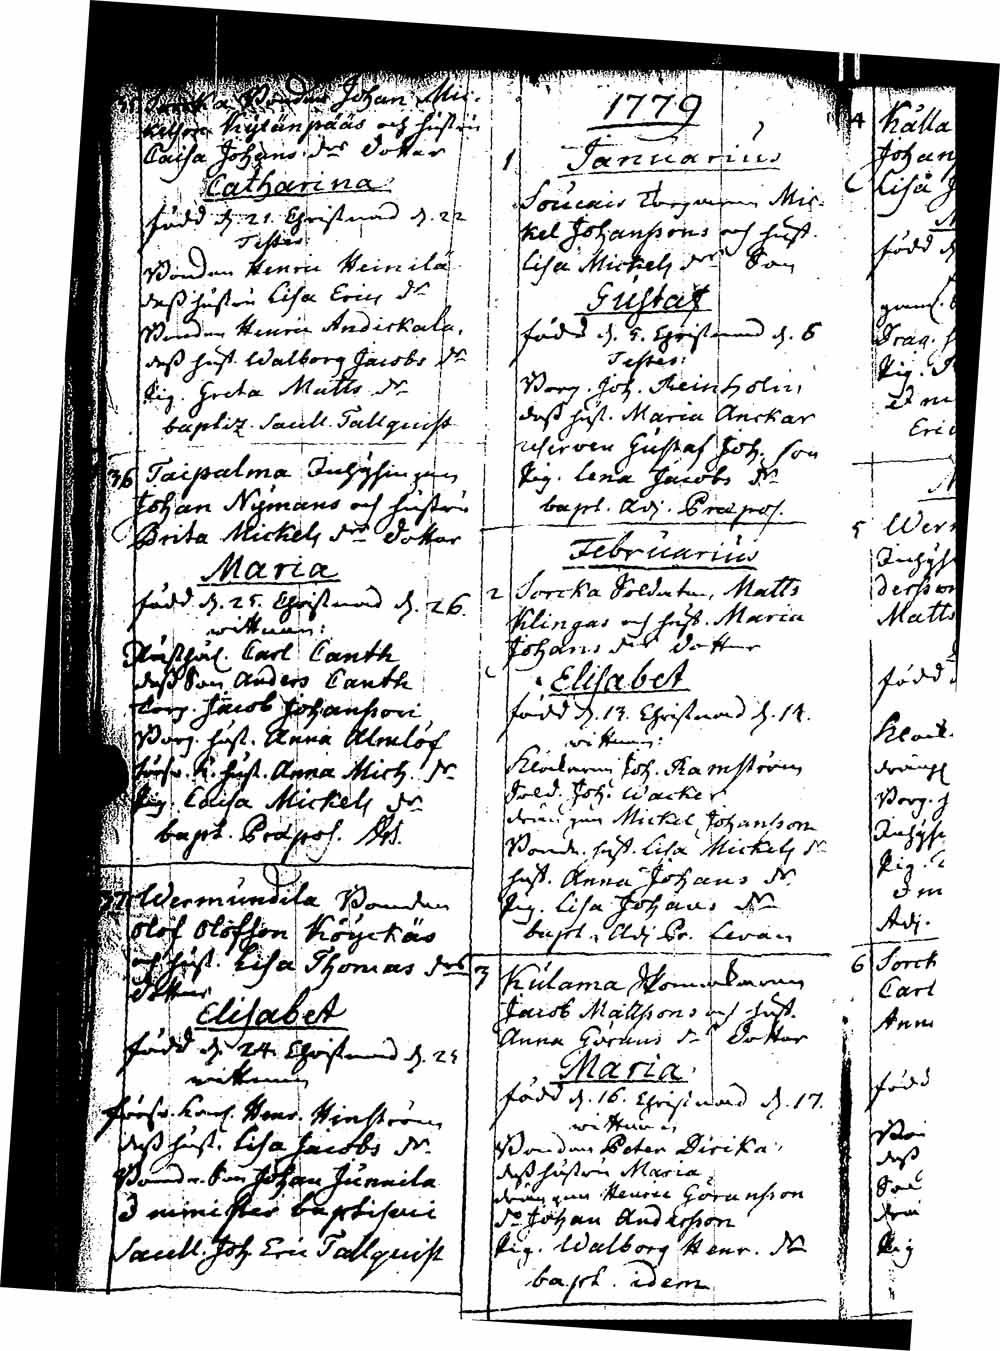 35 Sorcka Bonden Johan Mic-
kelsson Kylänpääs och hustru
Caisa Johans dr dotter
Catharina
född d. 21. Christnad d. 22
Testes
Bonden Henric Heinilä
dess hustru Lisa Erics dr
Bonden Henric Andickala,
dess hust. Walborg Jacobs dr
Pig. Greta Matts dr
baptiz. Sacell. Tallquist
36 Taipalma Inhysingen
Johan Nymans och hustru
Brita Mickels drs dotter
Maria
född d. 25. Christnad d. 26.
wittnen:
Carl Canth
dess Son Anders Canth
Torp. Jacob Johansson
Borg. hust. Anna Almlöf
hust. Anna Mich. dr
Pig. Caisa Mickels dr
bapt. Præpos.
37 Wermundila Bonden
Olof Olofsson Köyckäs
och hust. Lisa Thomas drs
dotter
Elisabet
född d. 24. Christnad d. 25
wittnen
Henr. Hinström
dess hust. Lisa Jacobs dr
Bond. Son Johan Junnila
minister baptismi
Sacell. Joh. Eric Tallquist
1779
1 Januarius
Soucais Torparen Mic-
kel Johanssons och hust.
Lisa Mickels drs Son
Gustaf
född d. 5. Christnad d. 6
Testes:
Borg. Joh. Reinholm
dess hust. Maria Anckar
Gustaf Joh. son
Pig. Lena Jacobs dr
bapt. Adj. Præpos.
Februarius
2 Sorcka Soldaten, Matts
Klingas och hust. Maria
Johans drs dotter
Elisabet
född d. 13. Christnad d. 14.
wittnen:
Klockaren Joh. Ramström
Sold. Joh. Wacker
drängen Mickel Johansson
Bond. hust. Lisa Mickels dr
hust. Anna Johans dr
Pig. Lisa Johans dr
bapt. Adj. Pr. Levan
3 Kulama
Jacob Mattssons och hust.
Anna Görans drs Dotter
Maria
född d. 16. Christnad d. 17.
wittnen
Bonden Peter Dirika
dess hustru Maria
drängen Henric Göransson
do Johan Andersson
Pig. Walborg Henr. dr
bapt. idem
4 Källa
Johan
Lisa
M
född d
Drag.
Pig.
Eric
M
5 Wer
Inhys
dersson
Matts
född
Klock.
dräng
Borg.
Inhys
Pig.
Adj.
6 Sorck
Carl
Anna
född
Bon
dess
drä
Pig